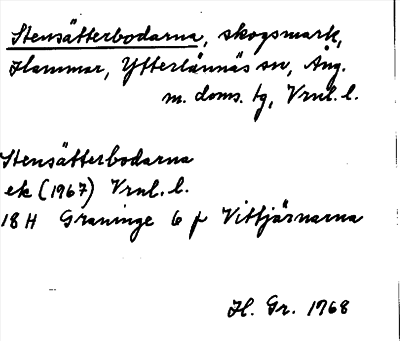 Stensätterbodarna, skogsmark,
Hammar, Ytterlännäs sn, Ång.
m. doms. tg, Vrnl. l.
Stensätterbodarna
ek (1967) Vrnl. l.
18 H Graninge 6 f Vittjärnarna
H. Gr. 1968